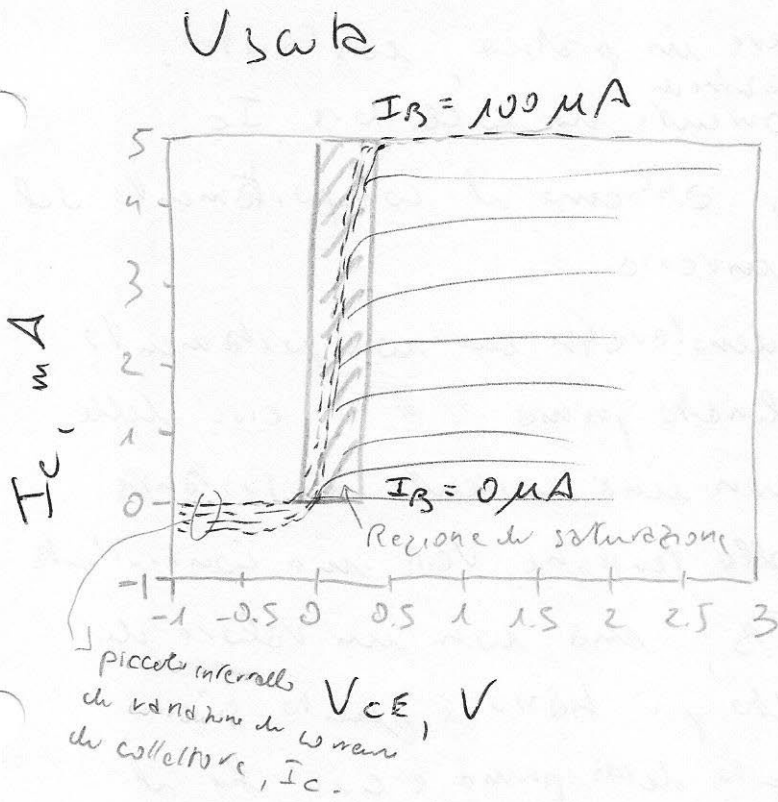 Uscita
I_B = 100 µA
5
4
3
2
1
0
-1
I_C, mA
I_B = 0 µA
Regione di saturazione
-1 -0.5 0 0.5 1 1.5 2 2.5 3
V_CE, V
piccolo intervallo
di variazione di corrente
di collettore, I_C.